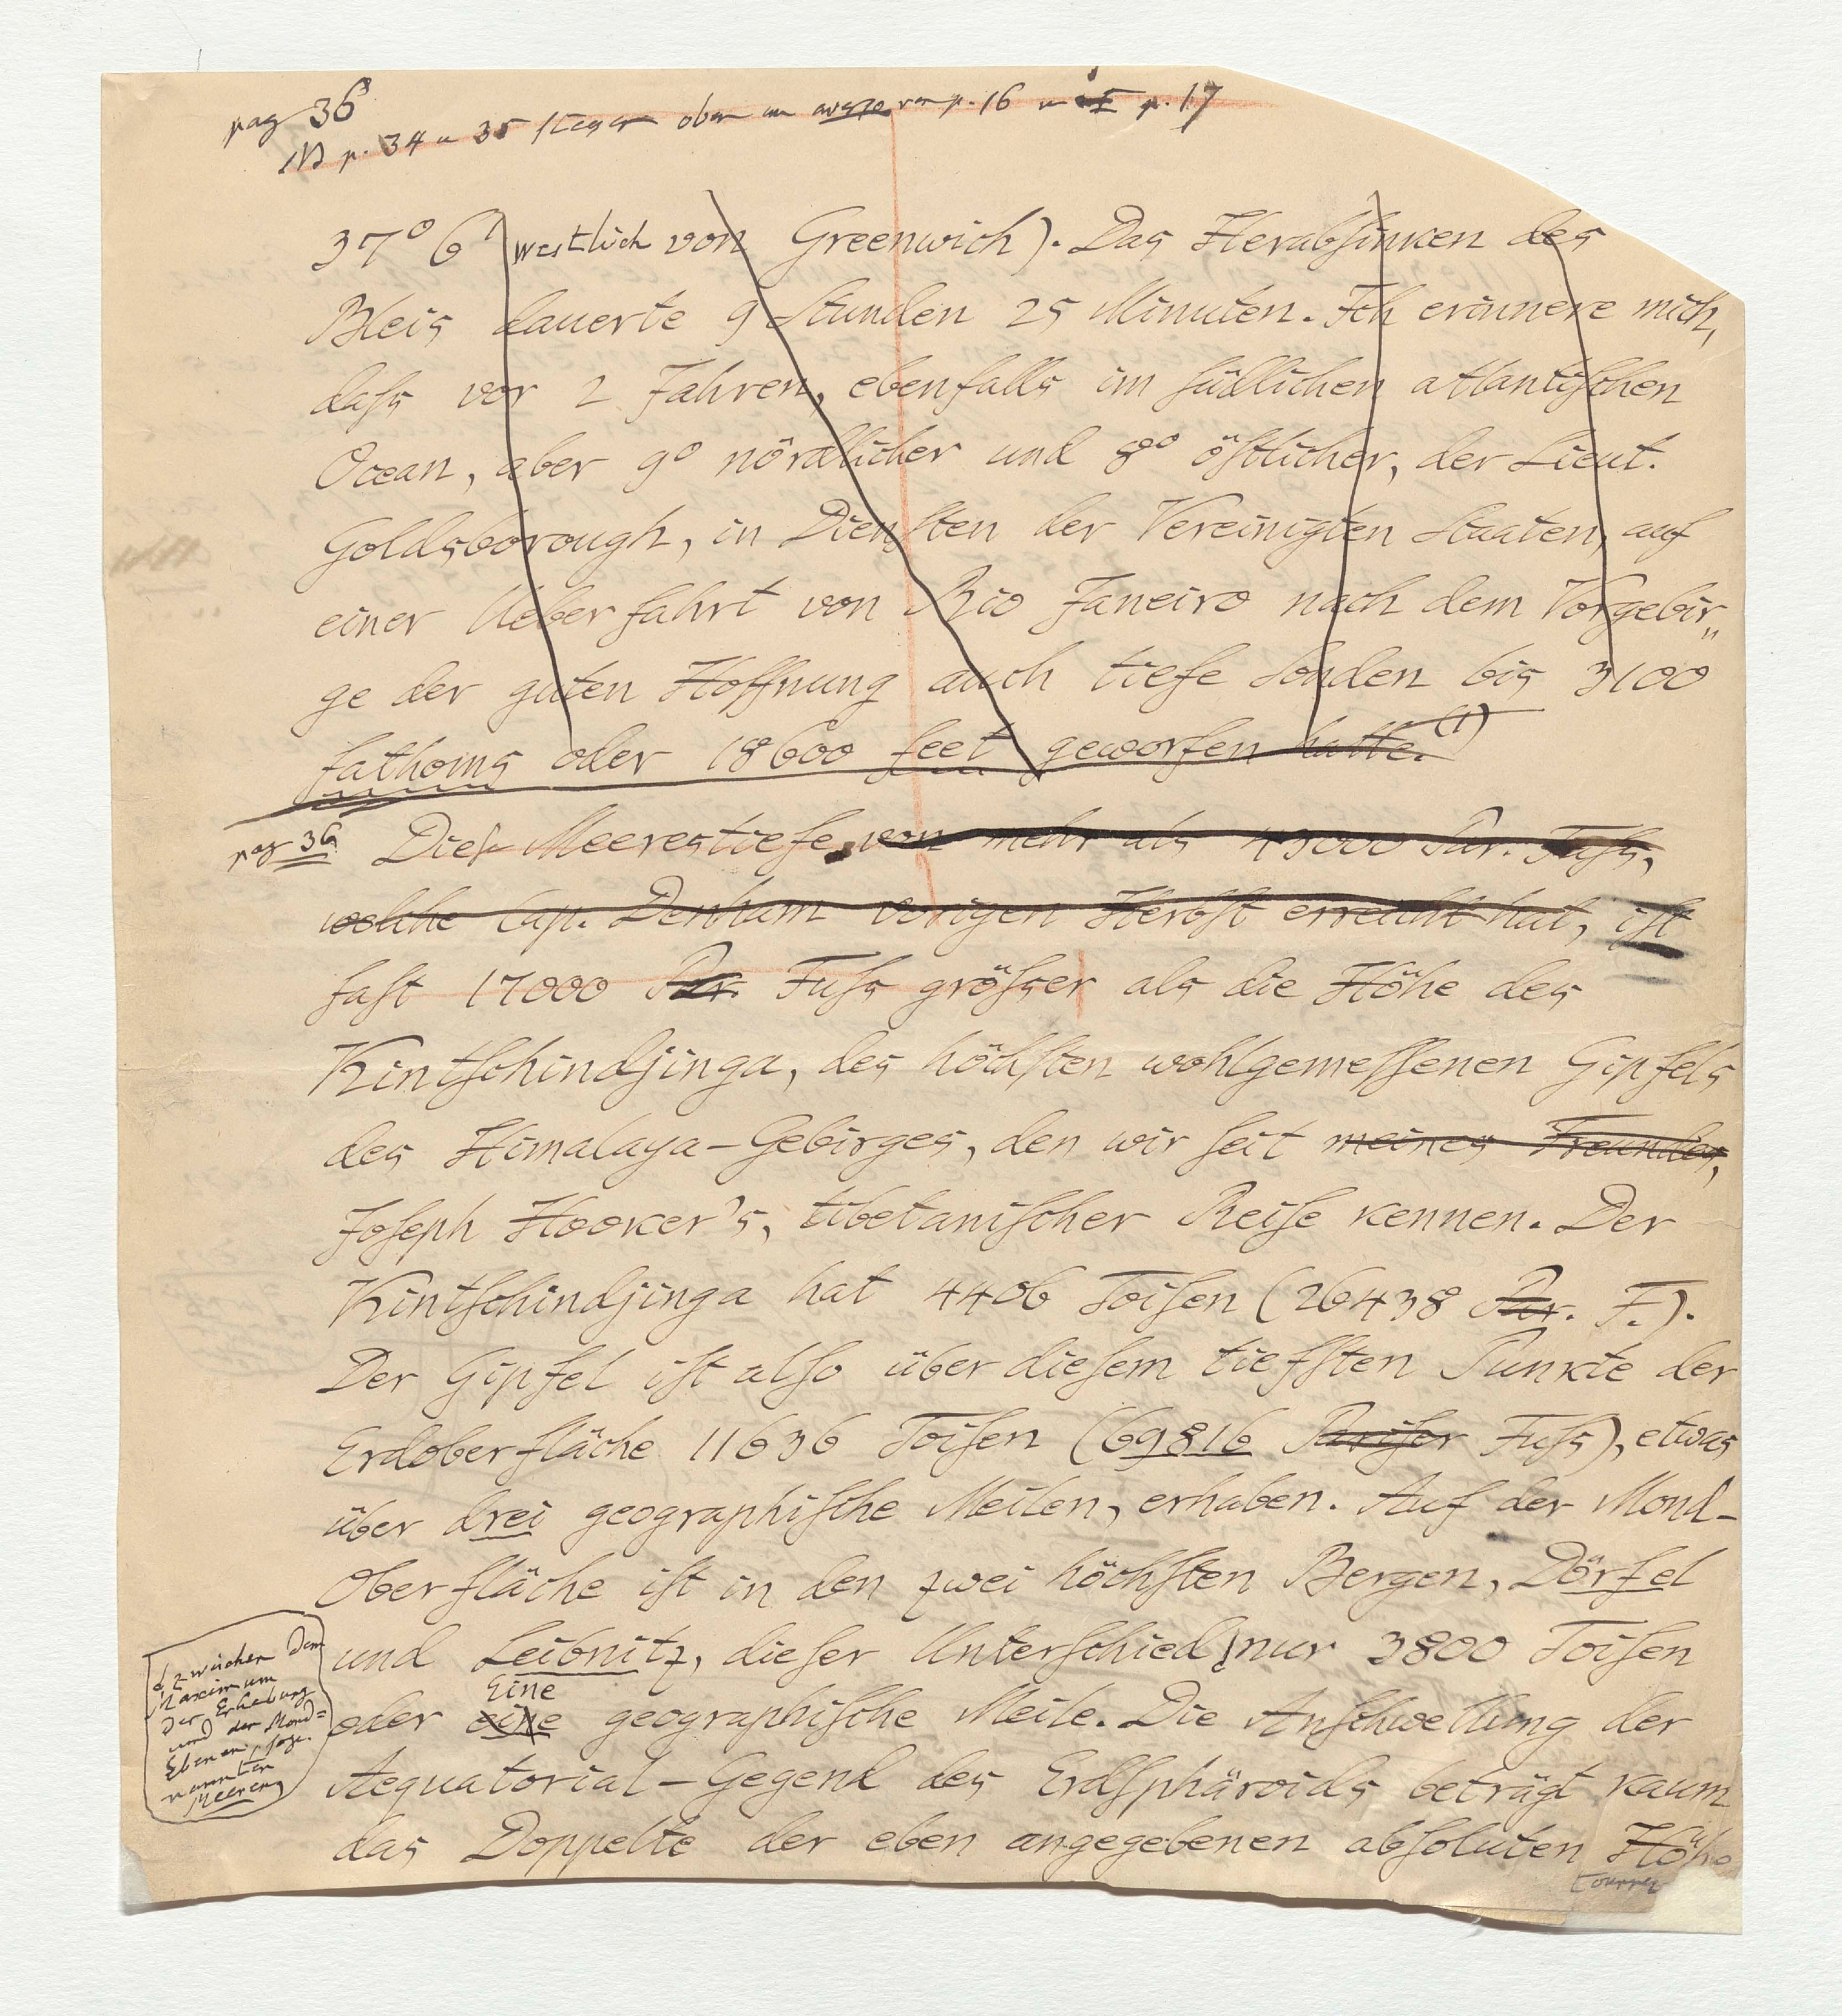 pag 36
NB p. 34 u 35 liegen oben im von p. 16 u p. 17
37° 6' westlich von Greenwich). Das Herabsinken des
Bleis dauerte 9 Stunden 25 Minuten. Ich erinnere mich,
daſs vor 2 Jahren, ebenfalls im ſüdlichen atlantiſchen
Ocean, aber 9° nördlicher und 8° öſtlicher, der Lieut.
Goldsborough, in Dienſten der Vereinigten Staaten, auf
einer Ueberfahrt von Rio Janeiro nach dem Vorgebir„
ge der guten Hoffnung auch tiefe Sonden bis 3100
fathoms oder 18600 feet geworfen hatte.(1)
pag 36 Dieſe Meerestiefe, von mehr als 43000 Par. Fuſs,
welche Cap. Denham vorigen Herbſt erreicht hat, iſt
faſt 17000 Par. Fuſs gröſser als die Höhe des
Kintſchindjinga, des höchſten wohlgemeſſenen Gipfels
des Himalaya-Gebirges, den wir ſeit meines Freundes,
Joſeph Hooker's, tibetaniſcher Reiſe kennen. Der
Kintſchindjinga hat 4406 Toiſen (26438 Par. F.).
Der Gipfel iſt alſo über dieſem tiefſten Punkte der
Erdoberfläche 11636 Toiſen (69816 Pariſer Fuſs), etwas
über drei geographiſche Meilen, erhaben. Auf der Mond-
Oberfläche iſt in den zwei höchſten Bergen, Dörfel
und Leibnitz, dieſer Unterſchied nur 3800 Toiſen
zwischen dem
Maximum
der Erhebung
und der Mond=
Ebenen, ſoge-
nannten
Meeren
Eine
oder eine geographiſche Meile. Die Anſchwellung der
Aequatorial-Gegend des Erdſphäroids beträgt kaum
das Doppelte der eben angegebenen abſoluten Höhe